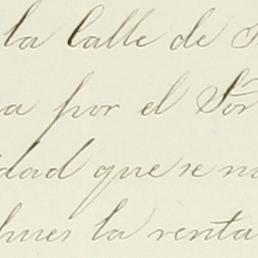 la Calle de S
a por el Sor
idad que se n
pues la renta